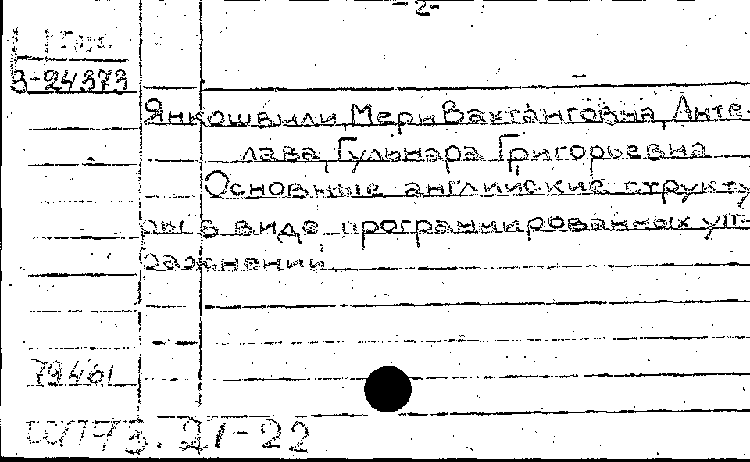 - 2-
Груз.
3-24373
Янкошвили, Мери Вахтанговна, Анте-
лава, Гульнара Григорьевна
Основные английские структу
ры в виде программированных уп-
ражнений.
79461
81'73.21-22